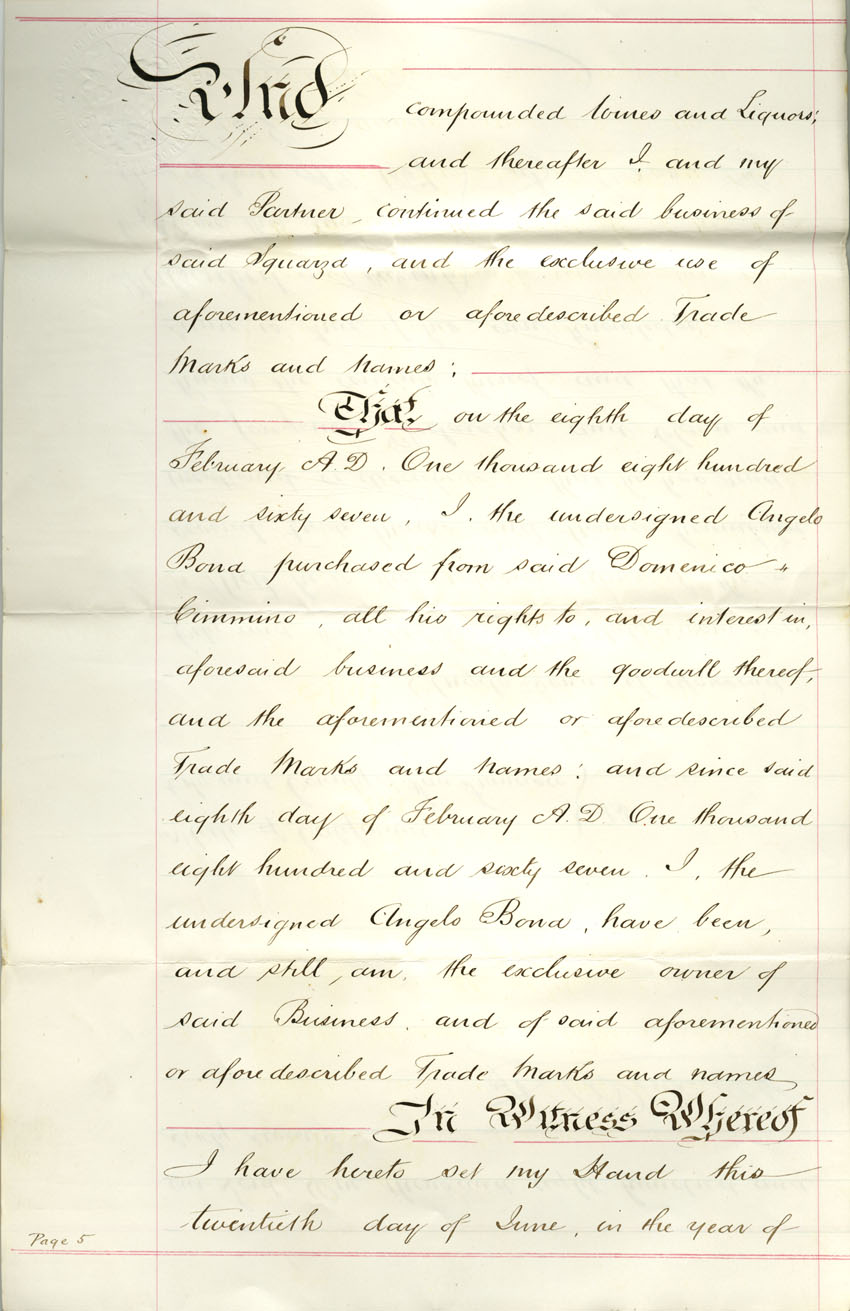 And compounded Wines and Liquors;
and thereafter I, and my
said Partner, continued the said business of
said Squarza, and the exclusive use of
aforementioned or aforedescribed Trade
Marks and Names;
That on the eighth day of
February A.D. One thousand eight hundred
and sixty seven, I, the undersigned Angelo
Bond purchased from said Domenico "
Cimmino, all his rights to, and interest in,
aforesaid business and the goodwill thereof,
and the aforementioned or aforedescribed
Trade Marks and Names; and since said
eighth day of February A.D. One thousand
eight hundred and sixty seven. I, the
undersigned Angelo Bond, have been,
and still, am, the exclusive owner of
said Business, and of said aforementioned
or aforedescribed Trade Marks and names
In Witness Whereof
I have hereto set my Hand this
twentieth day of June, in the year of
Page 5